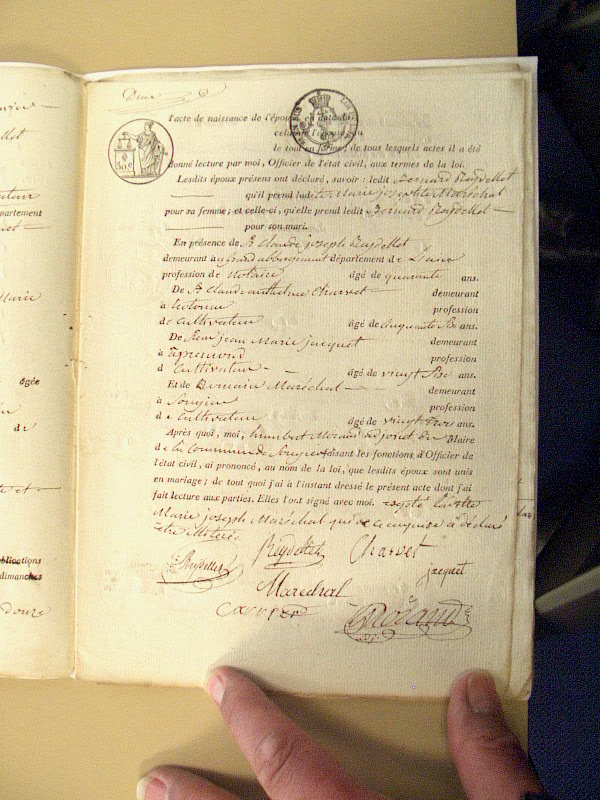 l'acte de naissance de l'épouse en date du
celui de l'époux, du
le tout en forme; de tous lesquels actes il a été
donné lecture par moi, Officier de l'état civil, aux termes de la loi.
Lesdits époux présens ont déclaré, savoir: ledit Bernard Reydellet
qu'il prend ladite Marie josephte Maréchal
pour sa femme; et celle-ci, qu'elle prend ledit Bernard Reydellet
pour son mari.
En présence de Sr Claude joseph Reydellet
demeurant au grand abbergement département de L'ain
profession de Notaire âgé de quarante ans.
De Sr Claude anthelme Charvet demeurant
à profession
de Cultivateur âgé de Cinquante six ans.
De Sieur jean Marie jacquet demeurant
à profession
d Cultivateur âgé de vingt six ans.
Et de Romain Maréchal demeurant
à Songieu profession
de Cultivateur âgé de vingt trois ans.
Après quoi, moi, humbert Morand adjoint du Maire
de la Commune de Songieu faisant les fonctions d'Officier de
l'état civil, ai prononcé, au nom de la loi, que lesdits époux sont unis
en mariage; de tout quoi j'ai à l'instant dressé le présent acte dont j'ai
fait lecture aux parties. Elles l'ont signé avec moi. excepté laditte
Marie joseph Maréchal qui de ce enquise a déclaré
etre illiterée
Reydellet Charvet
jacquet
Marechal
Morand
âgée
de
publications
dimanches
douze